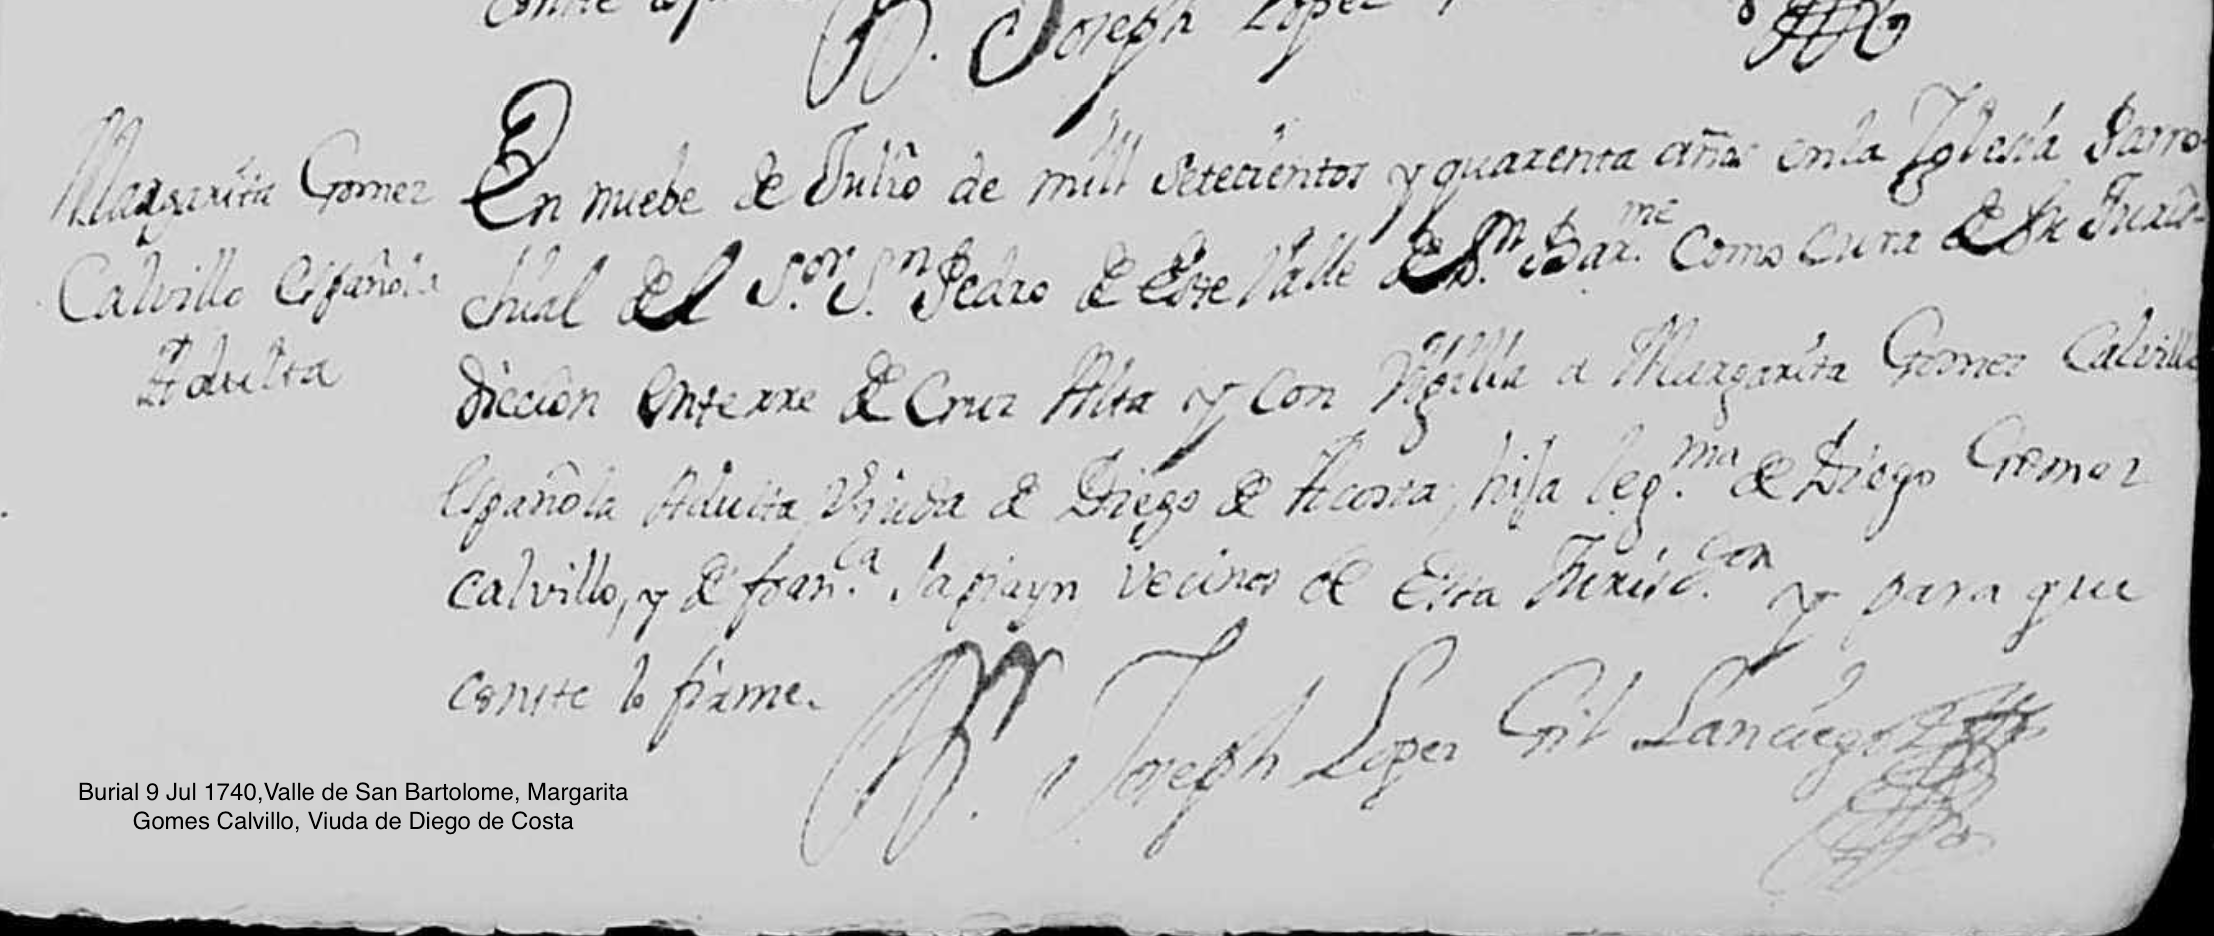 conste lo fir
Br. Joseph Lopez
Margarita Gomez
Calvillo Española
Adulta
En nuebe de Julio de mill setecientos y quarenta años en la Iglesia Parro-
chial del S.or S.n Pedro de este Valle de S.n Bar.me como Cura de su Juris-
diccion enterre de Cruz Alta y con Vigilia a Margarita Gomez Calvillo
Española Adulta, Viuda de Diego de Acosta, hija leg.ma de Diego Gomez
Calvillo, y de fran.ca vecinos de esta Jurisd.con y para que
conste lo firme.
Br. Joseph Lopez Gil Lanciego
Burial 9 Jul 1740,Valle de San Bartolome, Margarita
Gomes Calvillo, Viuda de Diego de Costa